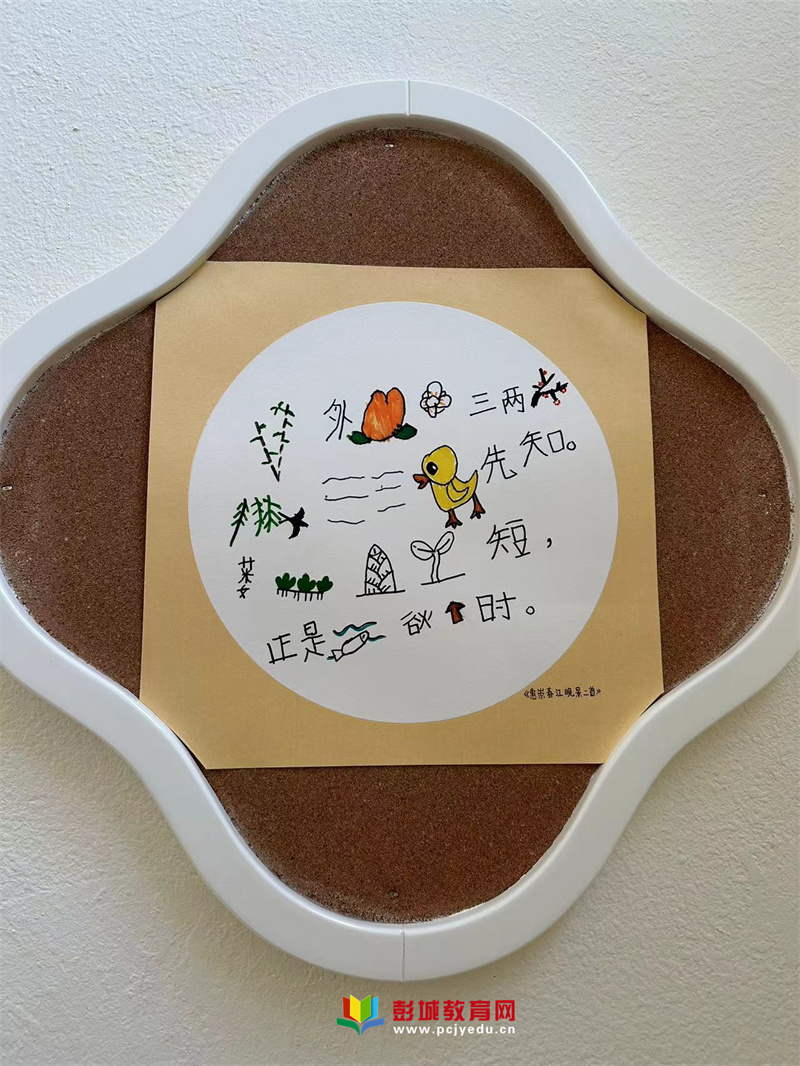 外三两
先知。
蒌短，
正是欲时。
《惠崇春江晚景二首》
彭城教育网
www.pcjyedu.cn